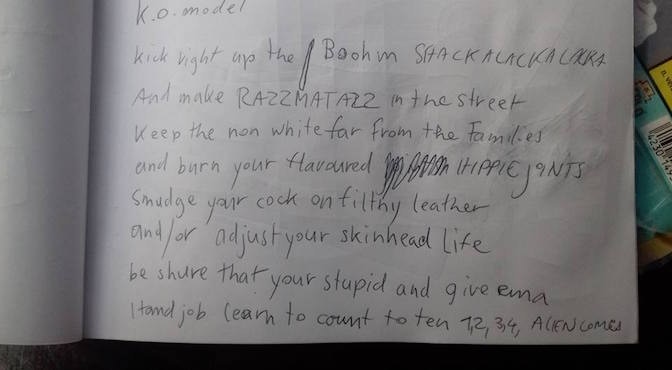 K.O. model
kick right up the Boohm SHACKALACKALAKA
And make RAZZMATAZZ in the street
Keep the non white far from the families
and burn your flavoured HIPPIE JOINTS
Smudge your cock on filthy leather
and/or adjust your skinhead life
be shure that your stupid and give ema
Handjob learn to count to ten 1,2,3,4, ALIEN COMES